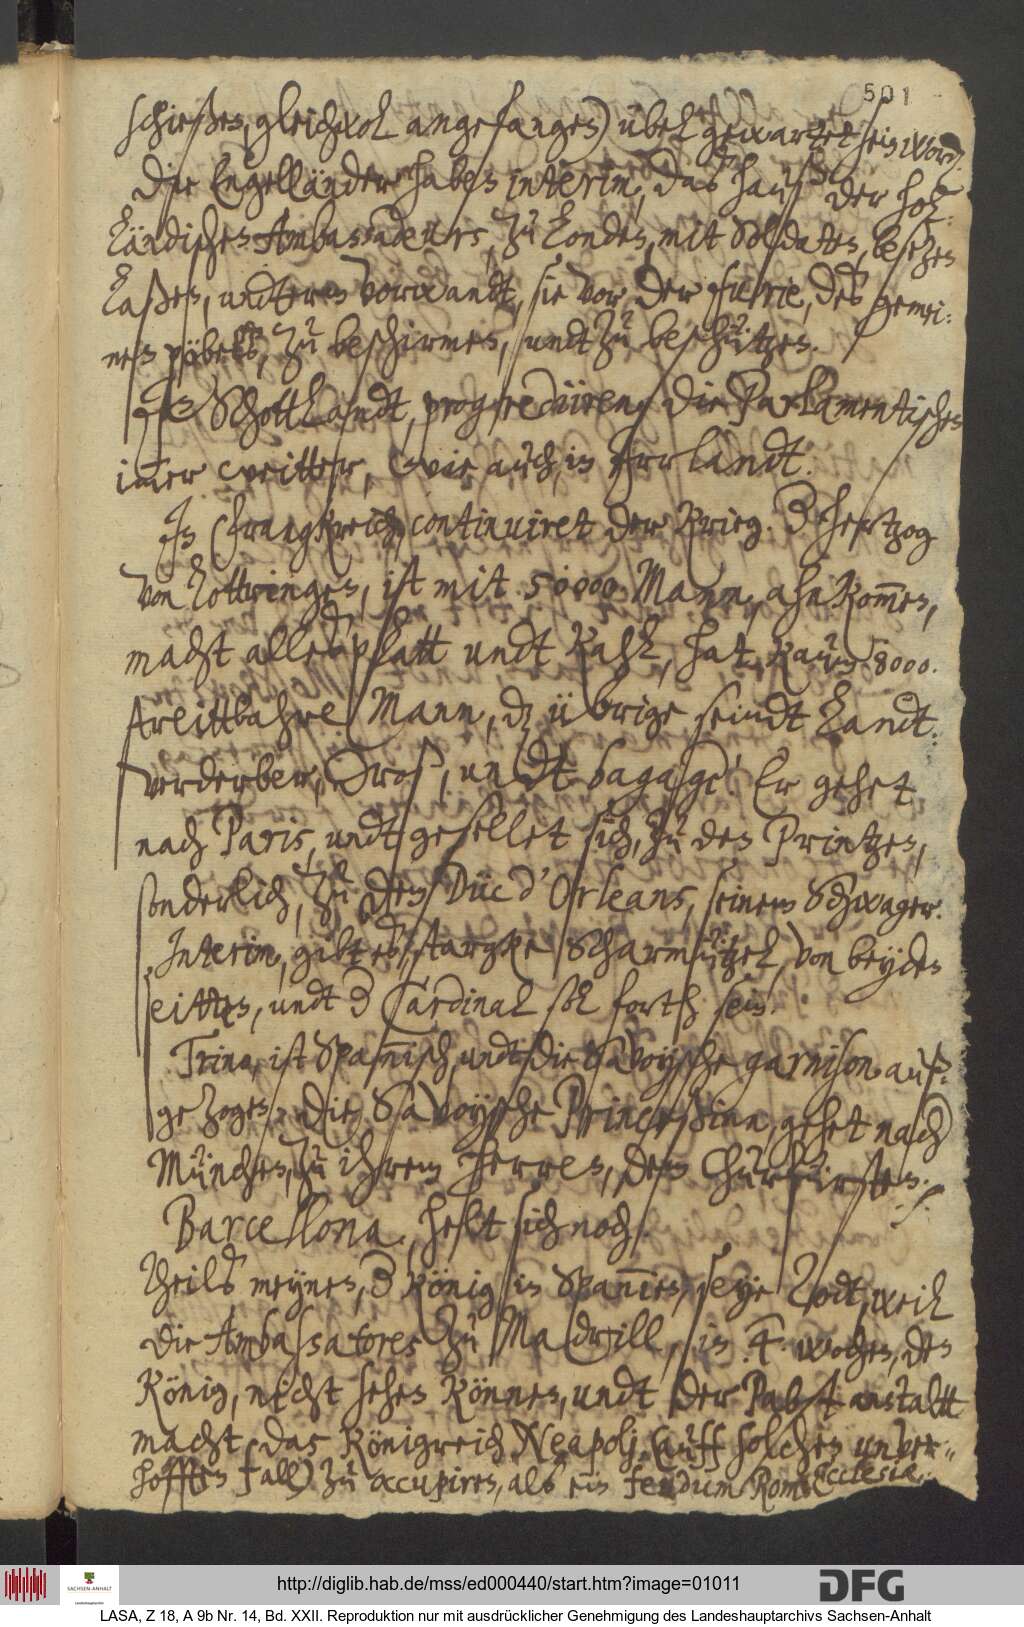 501
schießen, gleichwol angefangen) übel gewartet sein word.
Die Engelländer haben interim, das hauß der hol¦
ländischen Ambassadeurs, zu Londen, mit Soldaten, besetzen
laßen, undterm vorwandt, sie vor der furie, des gemei¦
nen pöbels, zu beschirmen, undt zu beschützen.
In Schottlandt, progrediiren die Parlamentischen
im̄er weitter, wie auch in Irrlandt.
In Franckreich, continuiret der Krieg. Der Hertzog
von Lottringen, ist mit 50000 Mann, ahnkom̄en,
macht alles platt undt kahl, hat kaum 8000.
streittbahre Mann, das übrige seindt Landt¦
verderber, Tros, undt bagage! Er gehet
nach Paris, undt gesellet sich, zu den Printzen,
sonderlich, zu dem Duc d'Orleans, seinem Schwager.
Interim, gibt es starcke Scharmützel, von beyden
seitten, undt der Cardinal sol forth sein.
Trino, ist Spannisch, undt die Savoyische garnison auß¦
gezogen. Die Savoyische Princeßinn, gehet nach
München, zu ihrem Herren, dem Churfürsten. ⸫
Barcellona, helt sich noch.
Theils meynen, der König in Span̄ien, seye Todt, weil
die Ambassatores zu Madrill, in 4 wochen, den
König, nicht sehen können, undt der Pabst anstaltt
macht, das Königreich Neapolj (auff solchen unver¦
hofften fall) zu occupiren, als ein feudum Romanae Ecclesiae.
http://diglib.hab.de/mss/ed000440/start.htm?image=01011
SACHSEN-ANHALT
DFG
LASA, Z 18, A 9b Nr. 14, Bd. XXII. Reproduktion nur mit ausdrücklicher Genehmigung des Landeshauptarchivs Sachsen-Anhalt